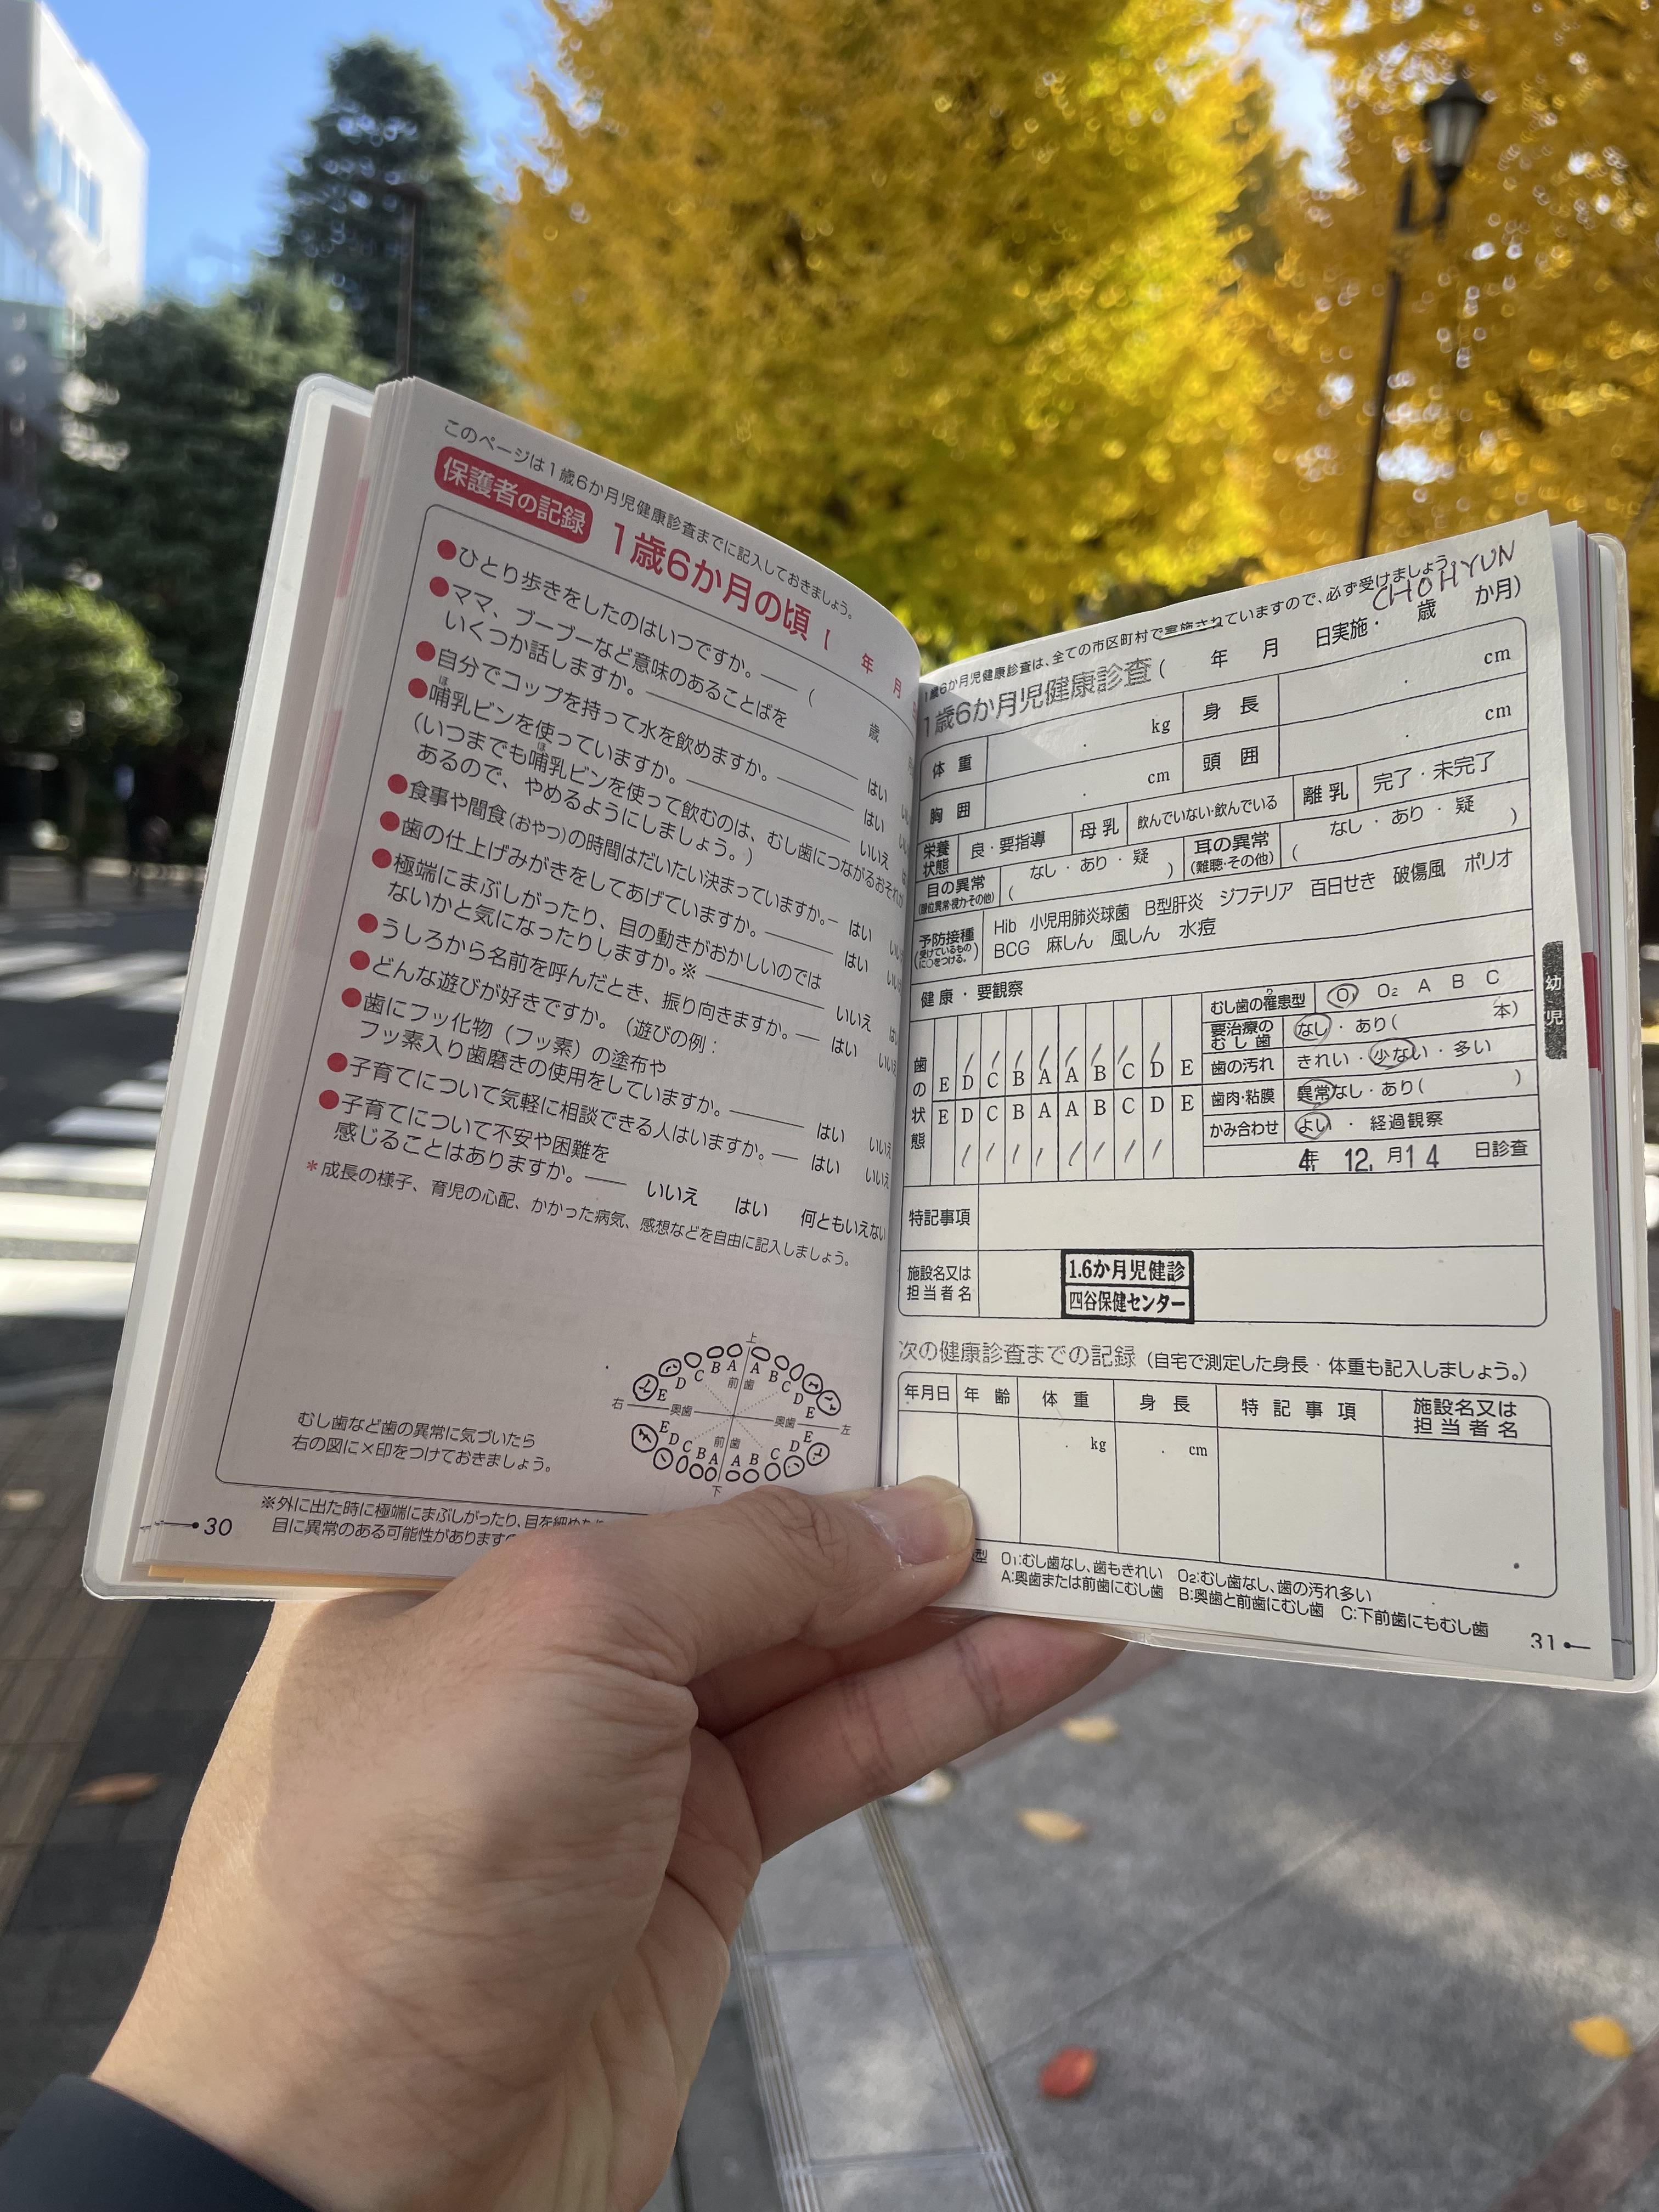 このページは1歳6か月児健康診査までに記入しておきましょう。
保護者の記録 1歳6か月の頃 ( 年 月
●ひとり歩きをしたのはいつですか。——( 歳
●ママ、ブーブーなど意味のあることばを
いくつか話しますか。 はい
●自分でコップを持って水を飲めますか。 はい
●哺乳ビンを使っていますか。 いいえ
(いつまでも哺乳ビンを使って飲むのは、むし歯につながるおそれが
あるので、やめるようにしましょう。)
●食事や間食(おやつ)の時間はだいたい決まっていますか。 はい
●歯の仕上げみがきをしてあげていますか。 はい
●極端にまぶしがったり、目の動きがおかしいのでは
ないかと気になったりしますか。※ いいえ
●うしろから名前を呼んだとき、振り向きますか。 はい
●どんな遊びが好きですか。(遊びの例:
●歯にフッ化物(フッ素)の塗布や
フッ素入り歯磨きの使用をしていますか。 はい いいえ
●子育てについて気軽に相談できる人はいますか。 はい いいえ
●子育てについて不安や困難を
感じることはありますか。 いいえ はい 何ともいえない
*成長の様子、育児の心配、かかった病気、感想などを自由に記入しましょう。
むし歯など歯の異常に気づいたら
右の図に×印をつけておきましょう。
上
前歯
右 奥歯 奥歯 左
前歯
下
E D C B A A B C D E
E D C B A A B C D E
※外に出た時に極端にまぶしがったり、目を細めたり
目に異常のある可能性がありますの
30
CHOHYUN
1歳6か月児健康診査は、全ての市区町村で実施されていますので、必ず受けましょう。
1歳6か月児健康診査( 年 月 日実施・ 歳 か月)
体重 . kg 身長 . cm
胸囲 . cm 頭囲 . cm
栄養状態 良・要指導 母乳 飲んでいない・飲んでいる 離乳 完了・未完了
目の異常(眼位異常・視力・その他) なし・あり・疑 ( ) 耳の異常(難聴・その他) なし・あり・疑 ( )
予防接種(受けているものに○をつける。) Hib 小児用肺炎球菌 B型肝炎 ジフテリア 百日せき 破傷風 ポリオ
BCG 麻しん 風しん 水痘
健康・要観察
歯の状態
E D C B A A B C D E
E D C B A A B C D E
むし歯の罹患型 O₁ O₂ A B C
要治療のむし歯 なし・あり( 本)
歯の汚れ きれい・少ない・多い
歯肉・粘膜 異常なし・あり( )
かみ合わせ よい・経過観察
4年 12月14日診査
特記事項
施設名又は担当者名
1.6か月児健診
四谷保健センター
幼児
次の健康診査までの記録(自宅で測定した身長・体重も記入しましょう。)
年月日 年齢 体重 身長 特記事項 施設名又は担当者名
. kg . cm
型 O₁:むし歯なし、歯もきれい O₂:むし歯なし、歯の汚れ多い
A:奥歯または前歯にむし歯 B:奥歯と前歯にむし歯 C:下前歯にもむし歯
31